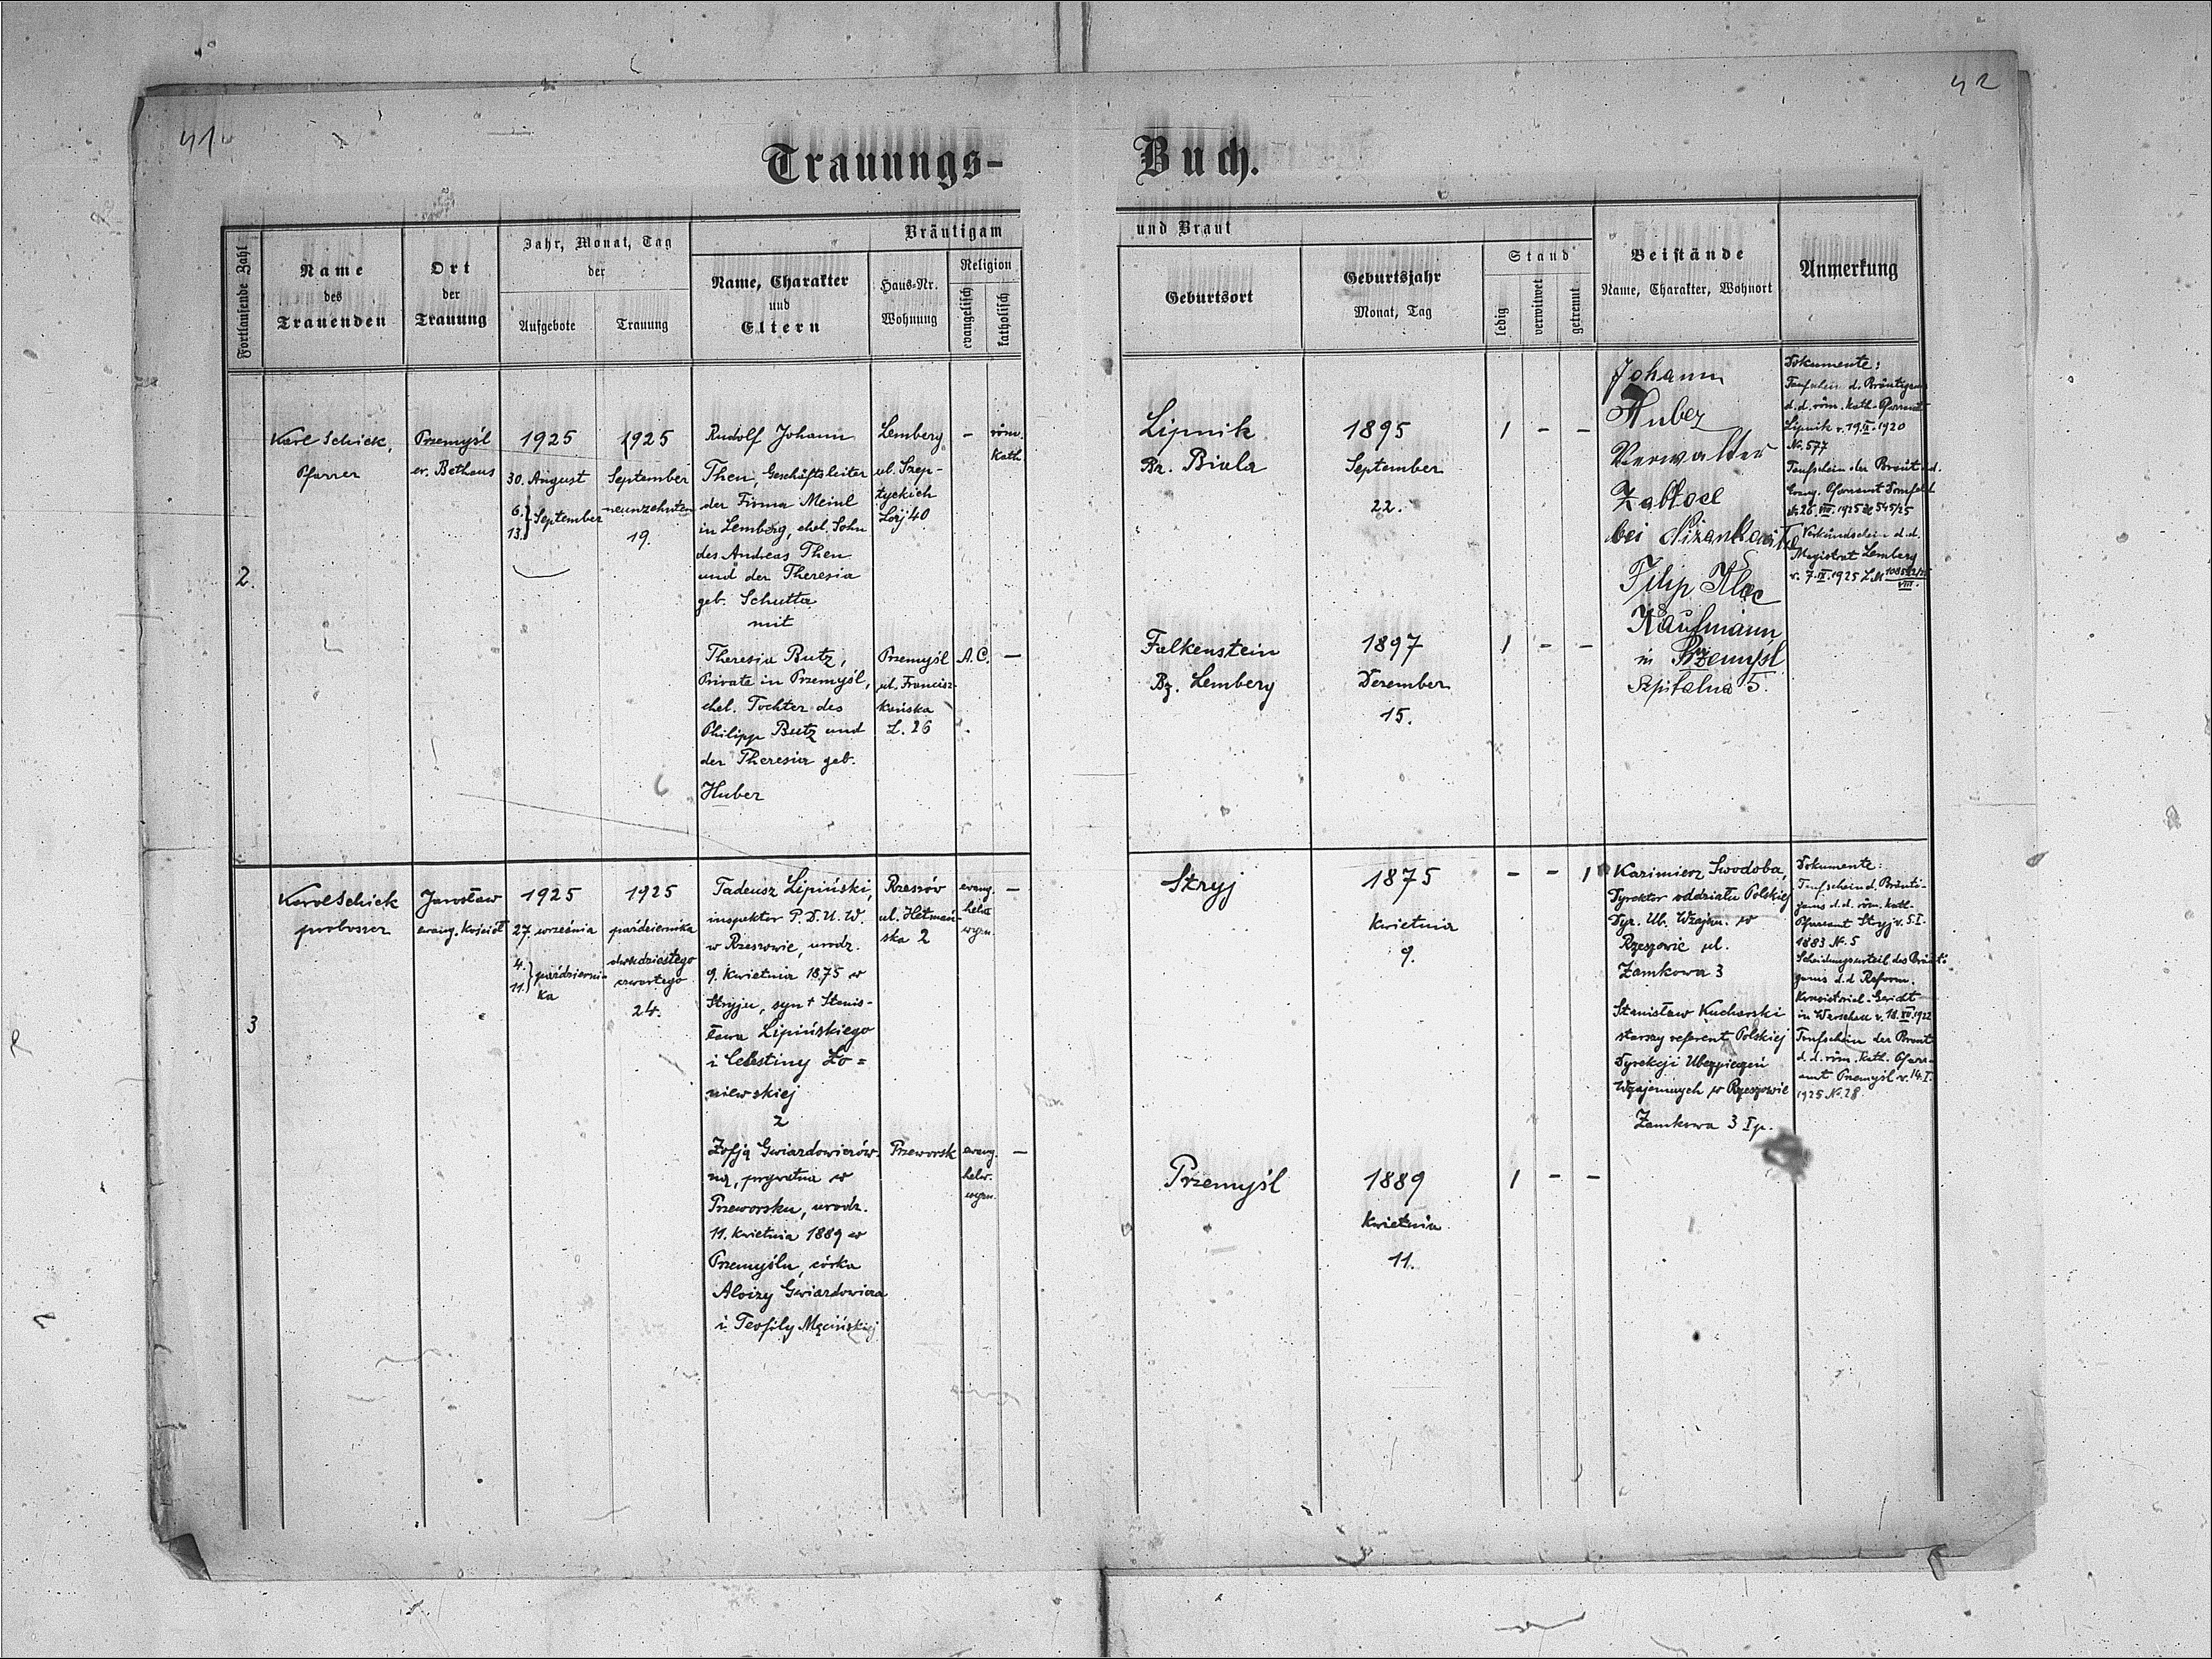 41
42
Trauungs-Buch.
Fortlaufende Zahl
Name
des
Trauenden
Ort
der
Trauung
Jahr, Monat, Tag
der
Aufgebote
Trauung
Bräutigam und Braut
Name, Charakter
und
Eltern
Haus-Nr.
Wohnung
Religion
evangelisch
katholisch
Geburtsort
Geburtsjahr
Monat, Tag
Stand
ledig
verwitwet
getrennt
Beistände
Name, Charakter, Wohnort
Anmerkung
2.
Karl Schick,
Pfarrer
Przemyśl
ev. Bethaus
1925
30. August
6.
13. } September
1925
September
neunzehnten
19.
Rudolf Johann
Then, Geschäftsleiter
der Firma Meinl
in Lemberg, ehel. Sohn
des Andreas Then
und der Theresia
geb. Schutta
mit
Theresia Butz,
Private in Przemyśl,
ehel. Tochter des
Philipp Butz und
der Theresia geb.
Huber
Lemberg
ul. Szep-
tyckich
40
Przemyśl
ul. Francisz-
kańska
L. 26
-
röm.
kath
A. C.
—
Lipnik
Bz. Biala
Falkenstein
Bz. Lemberg
1895
September
22.
1897
Dezember
15.
1 - -
1 - -
Johann
Huber
Verwalter
bei
Filip
Kaufmann
in Przemysl
Szpitalna 5.
Dokumente:
Taufschein d. Bräutigams
d. d. röm. kath. Pfarramt
Lipnik v. 19.IX.1920
No. 577
Taufschein der Braut d. d.
Evang. Pfarramt Dornfeld
v. 26.VIII.1925 No 545/25
Verkündschein d. d.
Magistrat Lemberg
v. 7.IX.1925
3
Karol Schick
proboszcz
Jarosław
ewang. kościół
1925
27. września
4.
11. } październi-
ka
1925
października
dwudziestego
czwartego
24.
Tadeusz Lipiński,
inspektor P. D. U. W.
w Rzeszowie, urodz.
9. kwietnia 1875 w
Stryju, syn + Stanis-
ława Lipińskiego
i Celestiny Ło=
niewskiej
z
Zofją Gwiazdowiczów-
ną, prywatna w
Przeworsku, urodz.
11. kwietnia 1889 w
Przemyślu, córka
Aloizy Gwiazdowicza
i Teofily Męcińskiej
Rzeszów
ul. Hetmań-
ska 2
Przeworsk
ewang.
helw.
wyzn.
—
ewang.
helw.
wyzn.
—
Stryj
Przemyśl
1875
kwietnia
9.
1889
kwietnia
11.
- - 1
1 - -
Kazimierz Swoboda,
Dyrektor oddziału Polskiej
Dyr. Ub. Wzajm. w
Rzeszowie ul.
Zamkowa 3
Stanisław Kucharski
starszy referent Polskiej
Dyrekcji Ubezpieczeń
Wzajemnych w Rzeszowie
Zamkowa 3 I p.
Dokumente:
Taufschein d. Bräuti-
gams d. d. röm. kath.
Pfarramt Stryj v. 5.I.
1883 No. 5
Scheidungsurteil des Bräuti-
gams d. d. Reform.
Konsistorial-Gericht
in Warschau v. 18.XII.1922
Taufschein der Braut
d. d. röm. kath. Pfarr-
amt Przemyśl v. 14.I.
1925 No. 28.